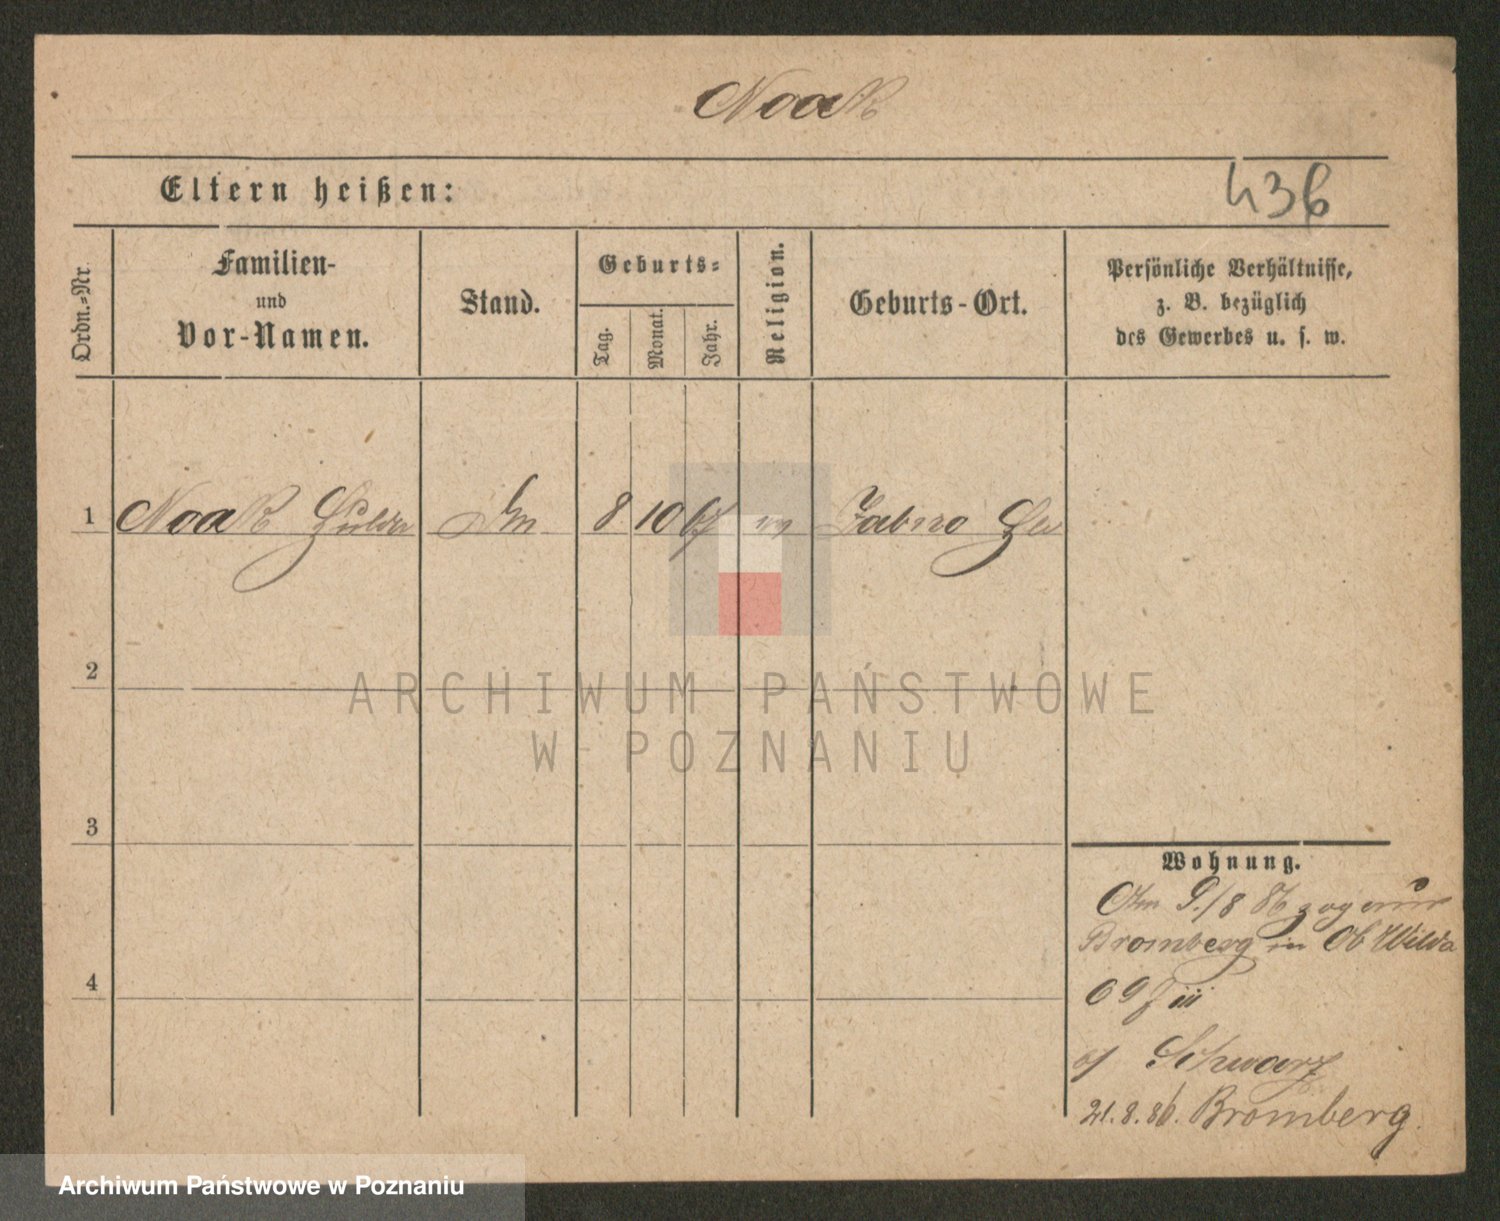 Noak
Eltern heißen:
436
Ordn.-Nr.
Familien-
und
Vor-Namen.
Stand.
Geburts-
Tag.
Monat.
Jahr.
Religion.
Geburts-Ort.
Persönliche Verhältnisse,
z. B. bezüglich
des Gewerbes u. s. w.
1 Noak Hulda 8 10 67 Jabno
2
3
4
Wohnung.
Am 9./8 86 zog aus
Bromberg in Ob Wilda
69
Schwarz
21.8.86. Bromberg.
ARCHIWUM PAŃSTWOWE
W POZNANIU
Archiwum Państwowe w Poznaniu